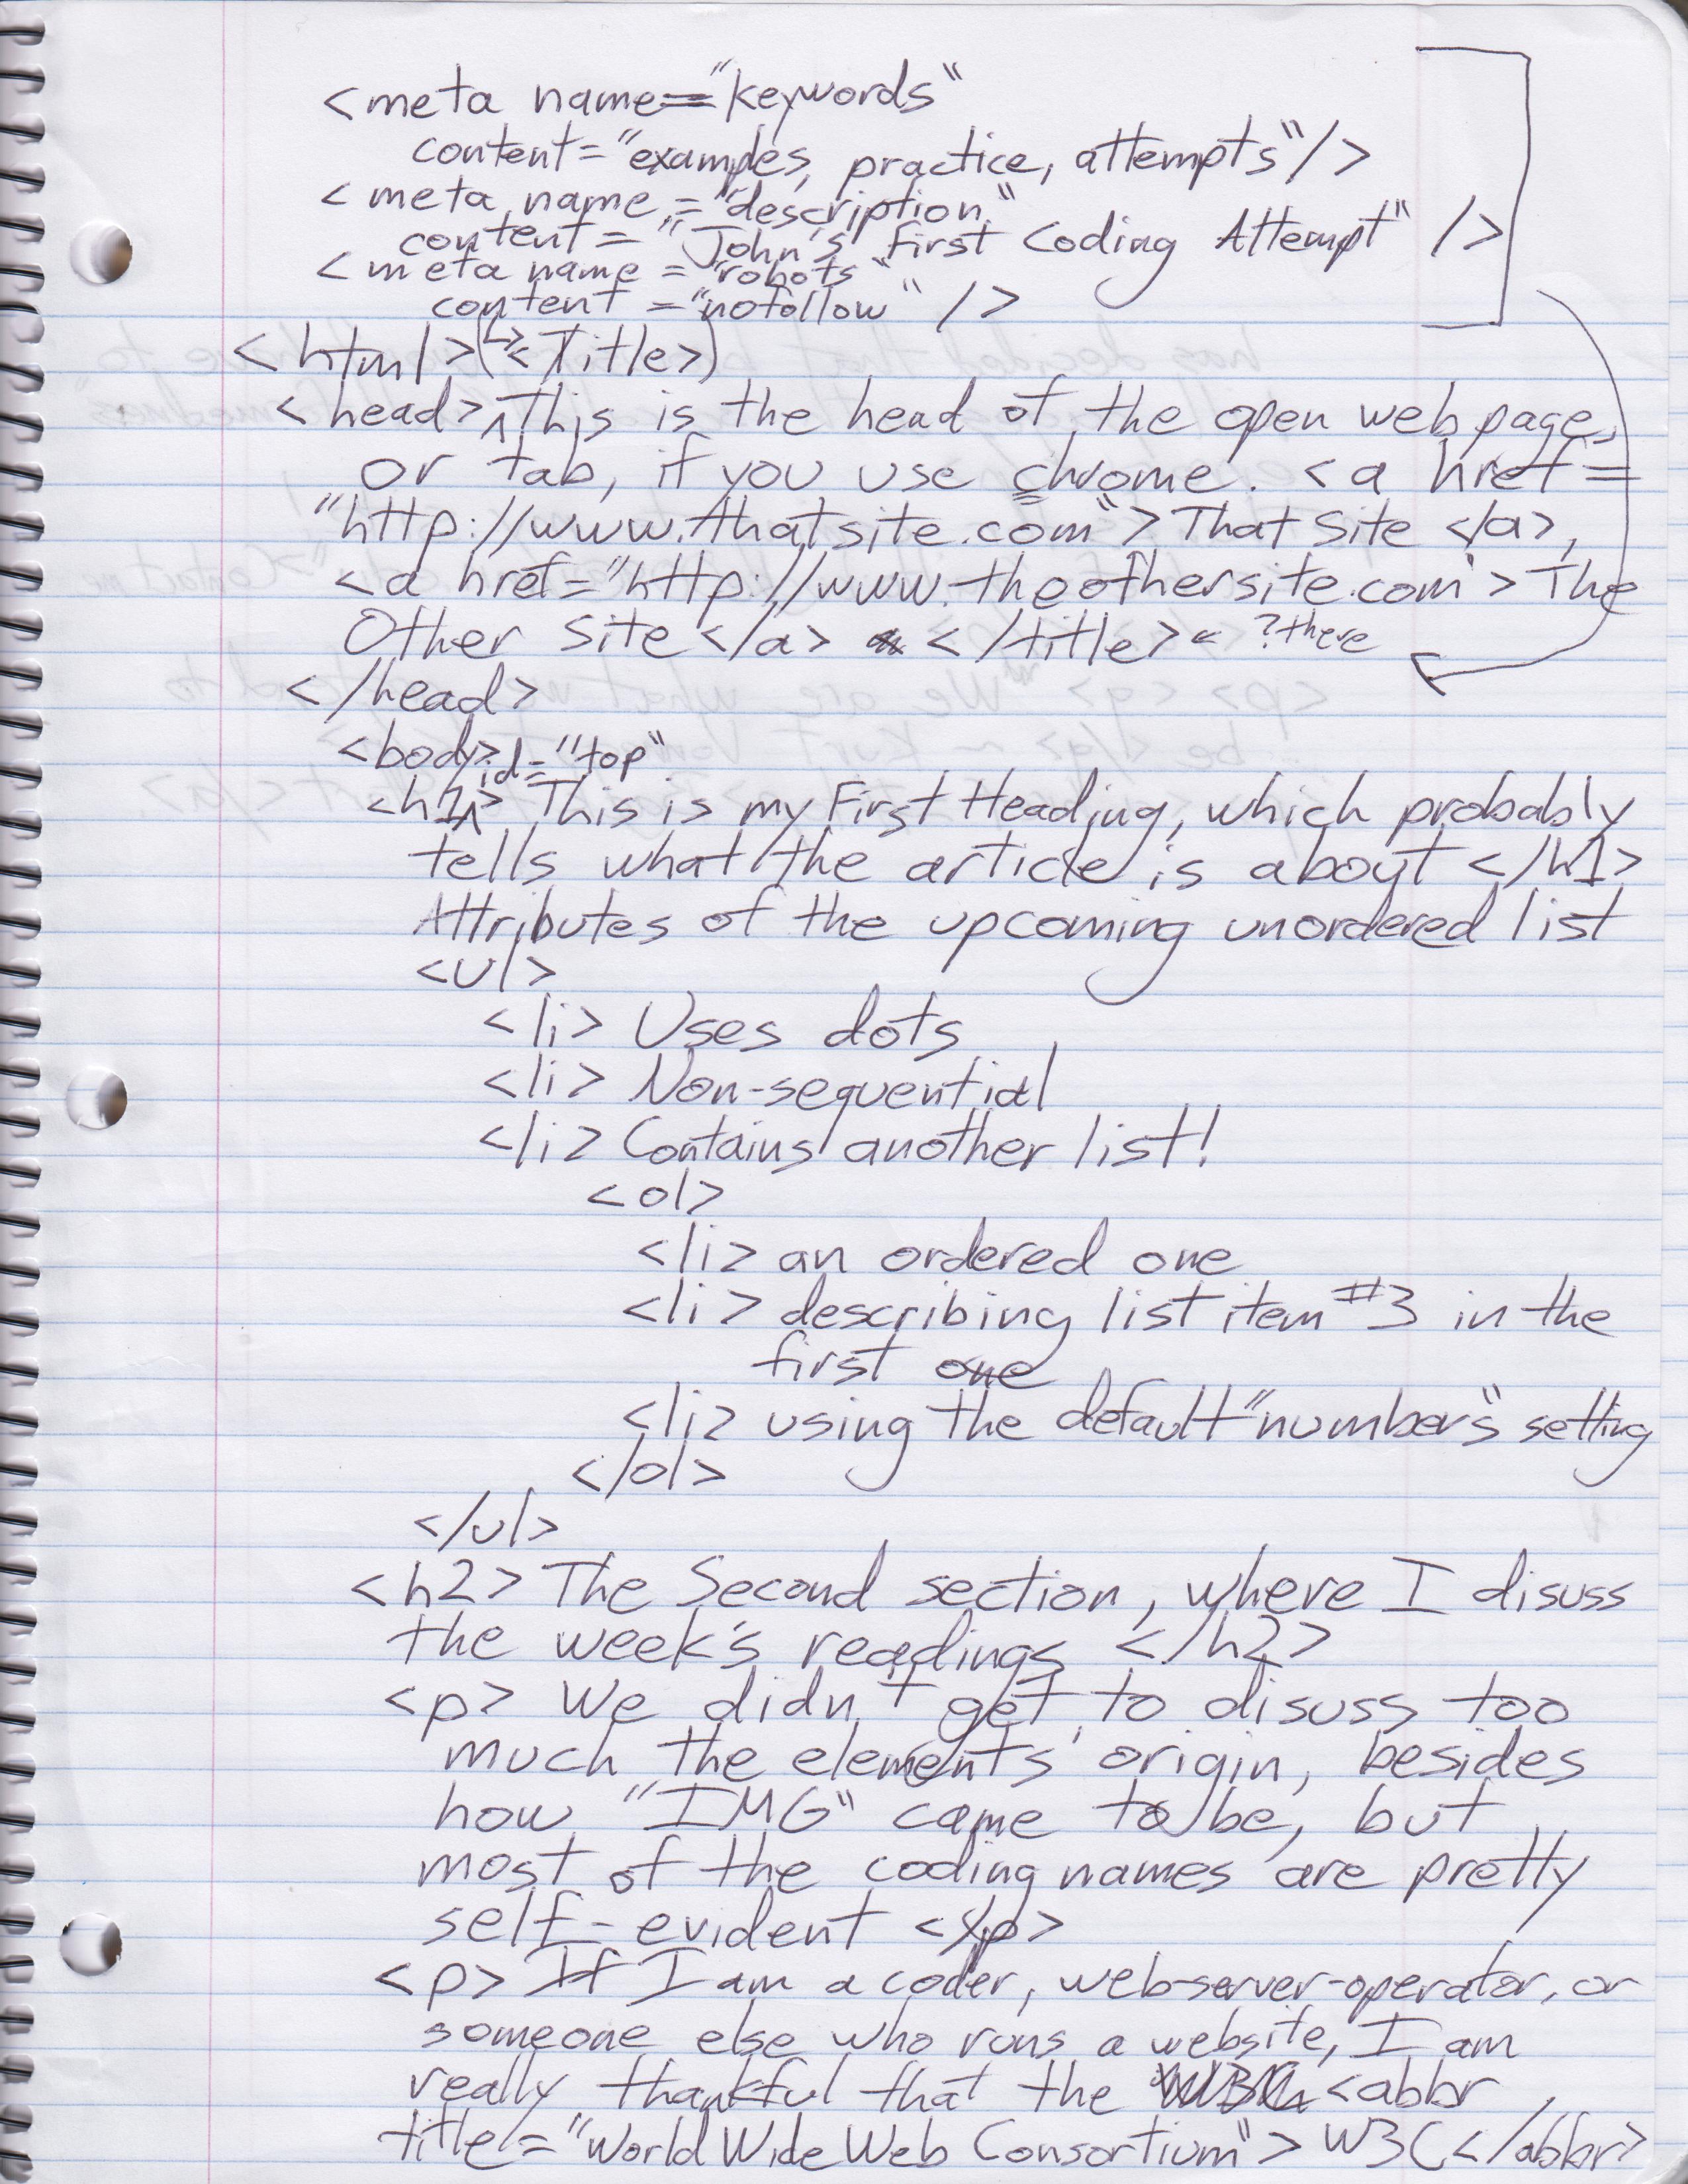 <meta name="keywords"
content="examples, practice, attempts"/>
<meta name="description"
content="John's First Coding Attempt" />
<meta name="robots"
content="nofollow" />
<html>(↳<Title>)
<head>^This is the head of the open web page,
or tab, if you use chrome. <a href=
"http://www.thatsite.com">That Site </a>,
<a href="http://www.theothersite.com">The
Other Site</a> </title>« ?there
</head>
<body>
id="top"
<h1^> This is my First Heading, which probably
tells what the article is about </h1>
Attributes of the upcoming unordered list
<ul>
<li> Uses dots
<li> Non-sequential
<li> Contains another list!
<ol>
<li> an ordered one
<li> describing list item #3 in the
first one
<li> using the default "numbers" setting
</ol>
</ul>
<h2> The Second section, where I disuss
the week's readings </h2>
<p> We didn't get to disuss too
much the elements' origin, besides
how "IMG" came to be, but
most of the coding names are pretty
self-evident </p>
<p> If I am a coder, web-server-operator, or
someone else who runs a website, I am
really thankful that the <abbr
title="World Wide Web Consortium"> W3C</abbr>